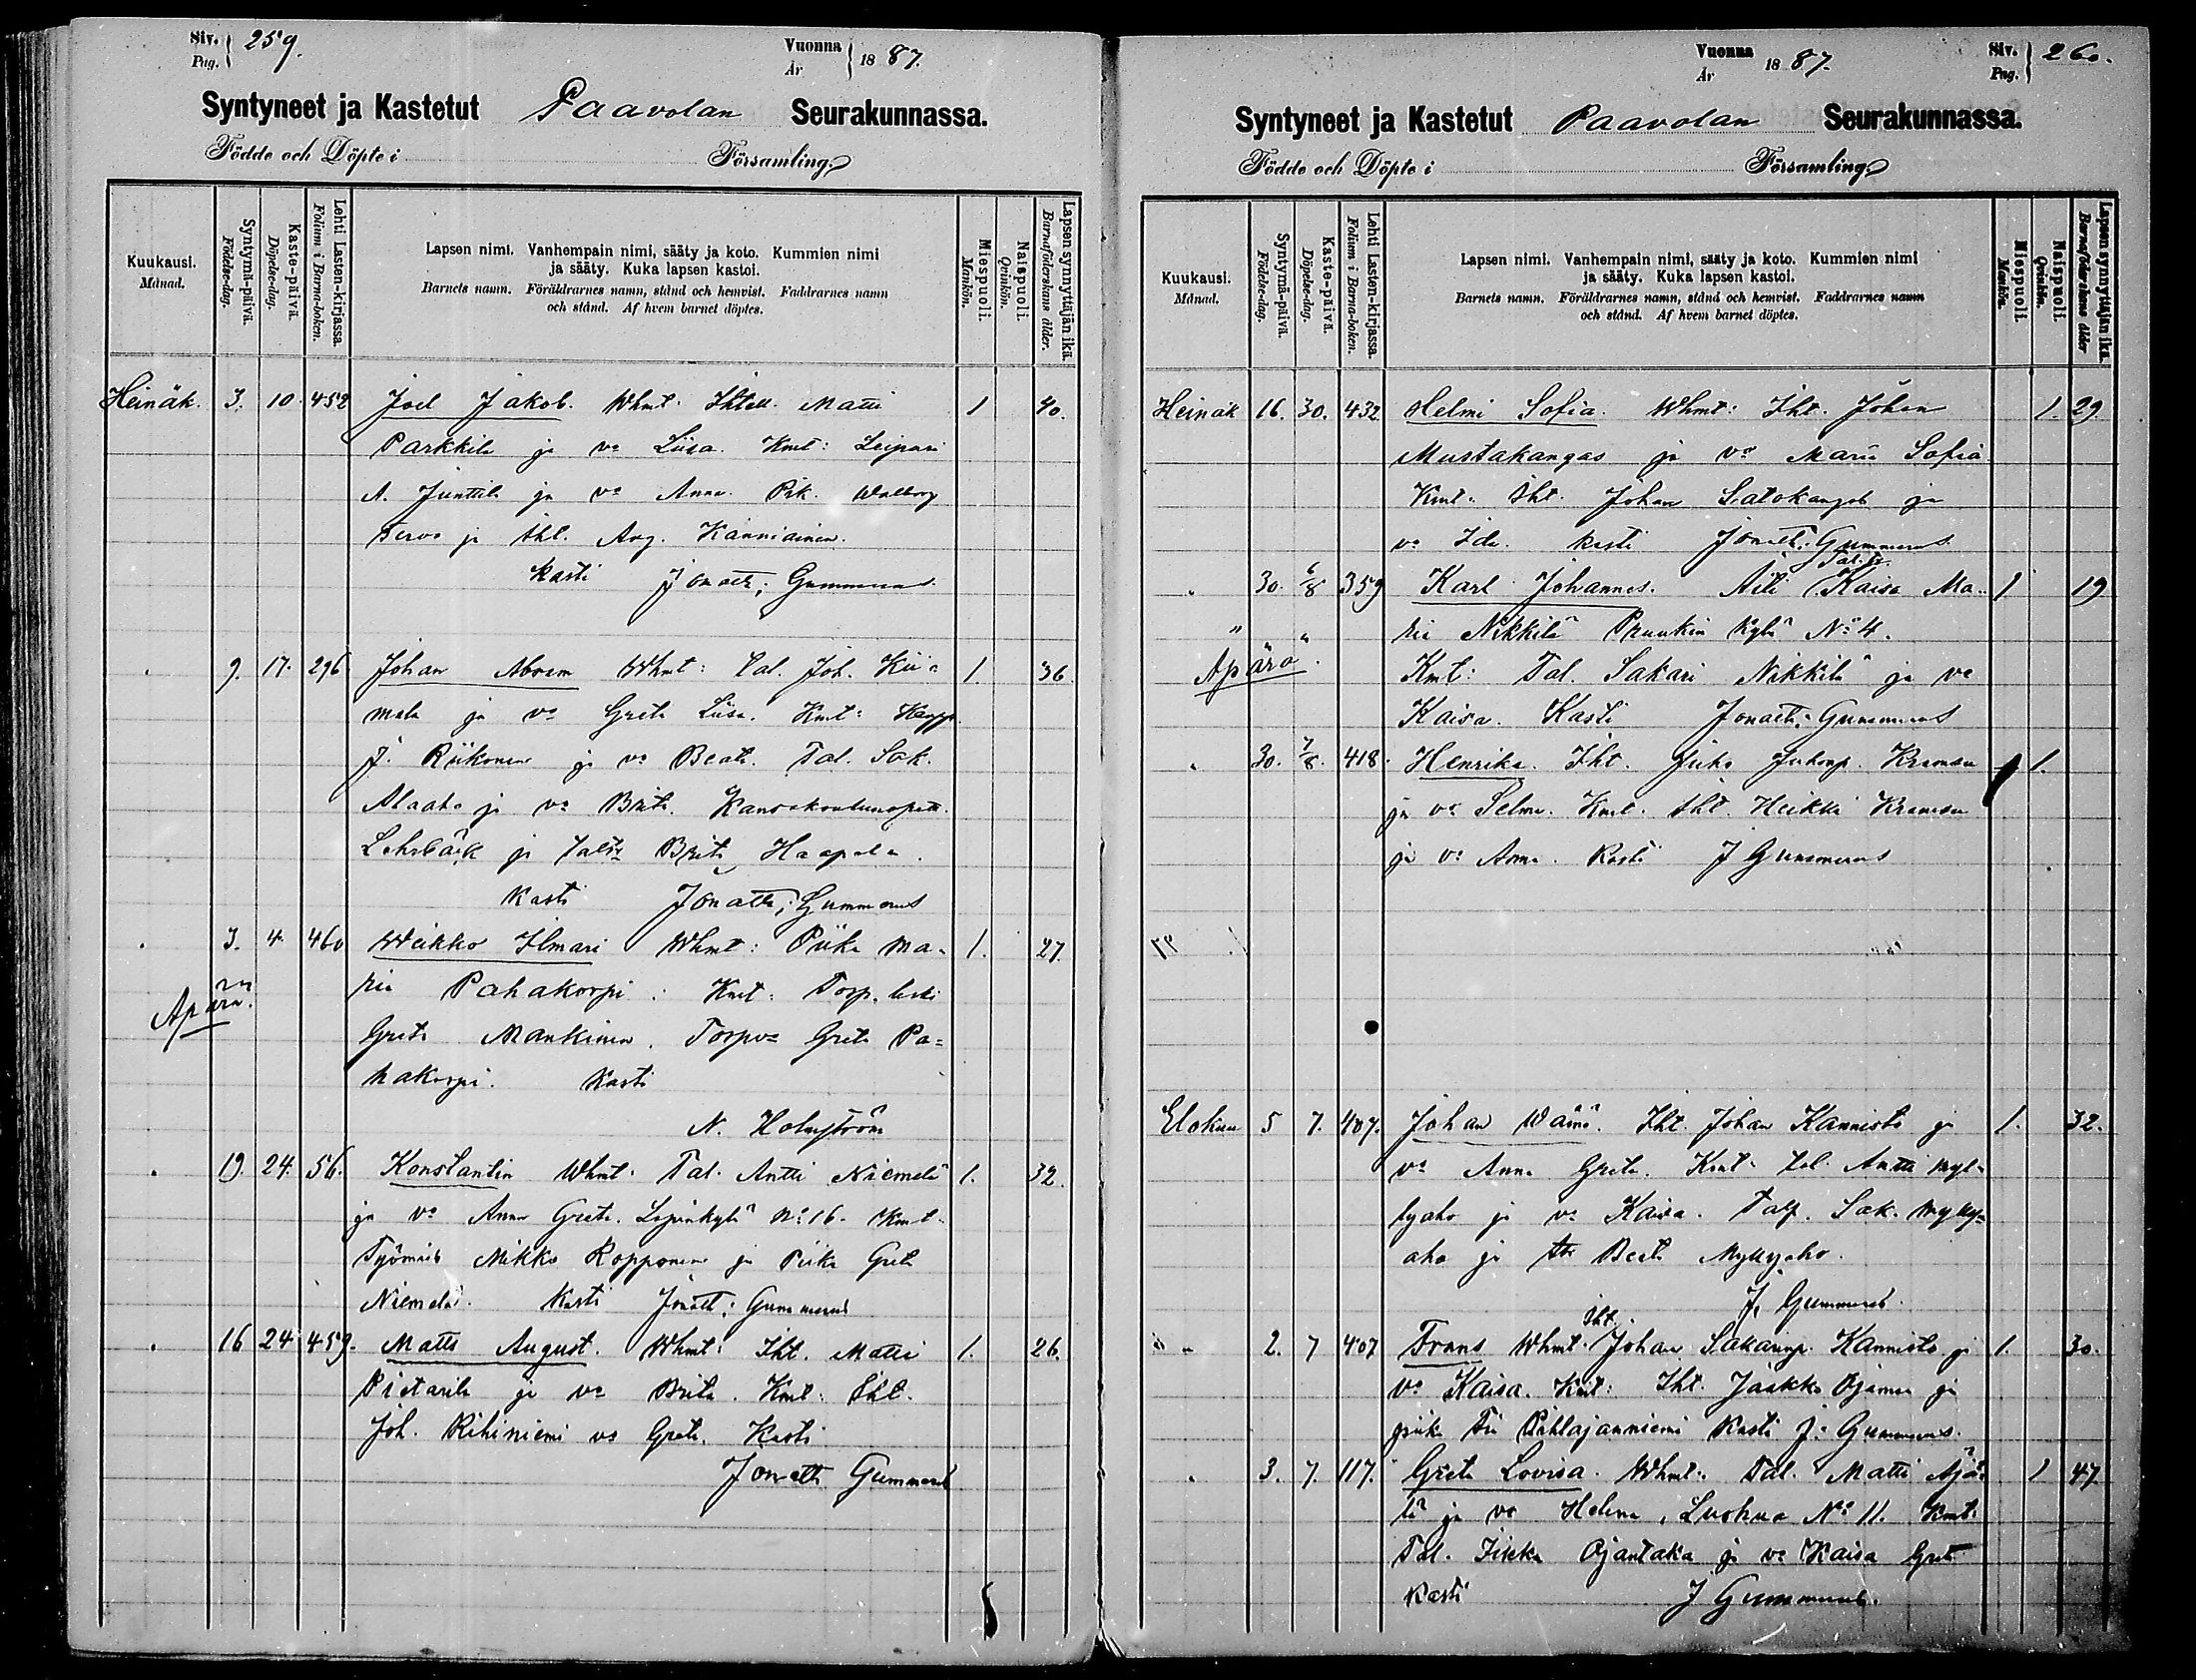 Siv. Pag. 259.
Vuonna År 1887.
Syntyneet ja Kastetut Paavolan Seurakunnassa.
Födde och Döpte i Församling.
Kuukausi. Månad.
Syntymä-päivä. Födelse-dag.
Kaste-päivä. Döpelse-dag.
Lehti Lasten-kirjassa. Folium i Barna-boken.
Lapsen nimi. Vanhempain nimi, sääty ja koto. Kummien nimi
ja sääty. Kuka lapsen kastoi.
Barnets namn. Föräldrarnes namn, stånd och hemvist. Faddrarnes namn
och stånd. Af hvem barnet döptes.
Miespuoli. Mankön.
Naispuoli. Qvinkön.
Lapsen synnyttäjän ikä. Barnaföderskans ålder.
Heinäk. 3. 10. 452 Joel Jakob. Whmt. Matti 1 40.
Parkkila ja vo Liisa. Kmt: Leipuri
A. Junttila ja vo Anna. Pik. Walborg
ja Iht. Aug. Kanniainen.
Kasti Jonath: Gummerus
9. 17. 296 Johan Abram Whmt: Tal. Joh. Kii= 1. 36.
mala ja vo Greta Liisa. Kmt: Kapp.
J. Riikonen ja vo Beata. Tal. Sak.
Alaaho ja vo Brita. Kansakoulunopett.
Lehrbäck ja Brita Haapala.
Kasti Jonath: Gummerus
3. 4. 460 Weikko Ilmari Whmt: Piika Ma= 1. 27.
Apärä.
ria Pahakorpi. Kmt: Torp. leski
Greta Mankinen. Torpvo Greta Pa=
hakorpi. Kasti
N. Holmström
19. 24. 56. Konstantin Whmt: Tal. Antti Niemelä 1. 32.
ja vo Anna Greta. Lapinkylä No 16. Kmt.
Työmies Mikko Kopponen ja Piika Greta
Niemelä. Kasti Jonath: Gummerus
16 24 459. Matts August. Whmt: Iht. Matti 1. 26.
Pietarila ja vo Brita. Kmt: Iht.
Joh. Riihiniemi vo Greta. Kasti
Jonath Gummerus
Vuonna År 1887.
Siv. Pag. 260.
Syntyneet ja Kastetut Paavolan Seurakunnassa.
Födde och Döpte i Församling.
Kuukausi. Månad.
Syntymä-päivä. Födelse-dag.
Kaste-päivä. Döpelse-dag.
Lehti Lasten-kirjassa. Folium i Barna-boken.
Lapsen nimi. Vanhempain nimi, sääty ja koto. Kummien nimi
ja sääty. Kuka lapsen kastoi.
Barnets namn. Föräldrarnes namn, stånd och hemvist. Faddrarnes namn
och stånd. Af hvem barnet döptes.
Miespuoli. Mankön.
Naispuoli. Qvinkön.
Lapsen synnyttäjän ikä. Barnaföderskans ålder
Heinäk 16. 30. 432. Helmi Sofia. Whmt: Iht. Johan 1. 29.
Mustakangas ja vo Maria Sofia.
Kmt: Iht. Johan Satokangas ja
vo Ida. Kasti Jonath: Gummerus
Tal. tr.
30. 6/8 359 Karl Johannes. Äiti Kaisa Ma= 1 19
ria Nikkilä Pruukin kylä No 4.
Apärä.
Kmt: Tal. Sakari Nikkilä ja vo
Kaisa. Kasti Jonath: Gummerus
30. 7/8. 418. Henrika. Iht. Juho Juhonp. Kramsu 1.
ja vo Selma. Kmt. Iht. Heikki Kramsu
ja vo Anna. Kasti J Gummerus
Elokuu 5 7. 407. Johan Wäinö. Iht. Johan Kannisto ja 1. 32.
vo Anna Greta. Kmt: Tal. Antti Myl=
lyaho ja vo Kaisa. Talp. Sak. Mylly=
aho ja tr Beata Myllyaho.
J. Gummerus.
Iht.
2. 7 407 Frans Whmt. Johan Sakarinp. Kannisto ja 1. 30.
vo Kaisa. Kmt: Iht. Jaakko Ojanen ja
piika Fii Pihlajanniemi Kasti J: Gummerus.
3. 7. 117. Greta Lovisa. Whmt: Tal. Matti Äijä= 1 47
lä ja vo Helena, Luohua No 11. Kmt:
Tal. Iikka Ojantaka ja vo Kaisa Greta
Kasti J Gummerus.